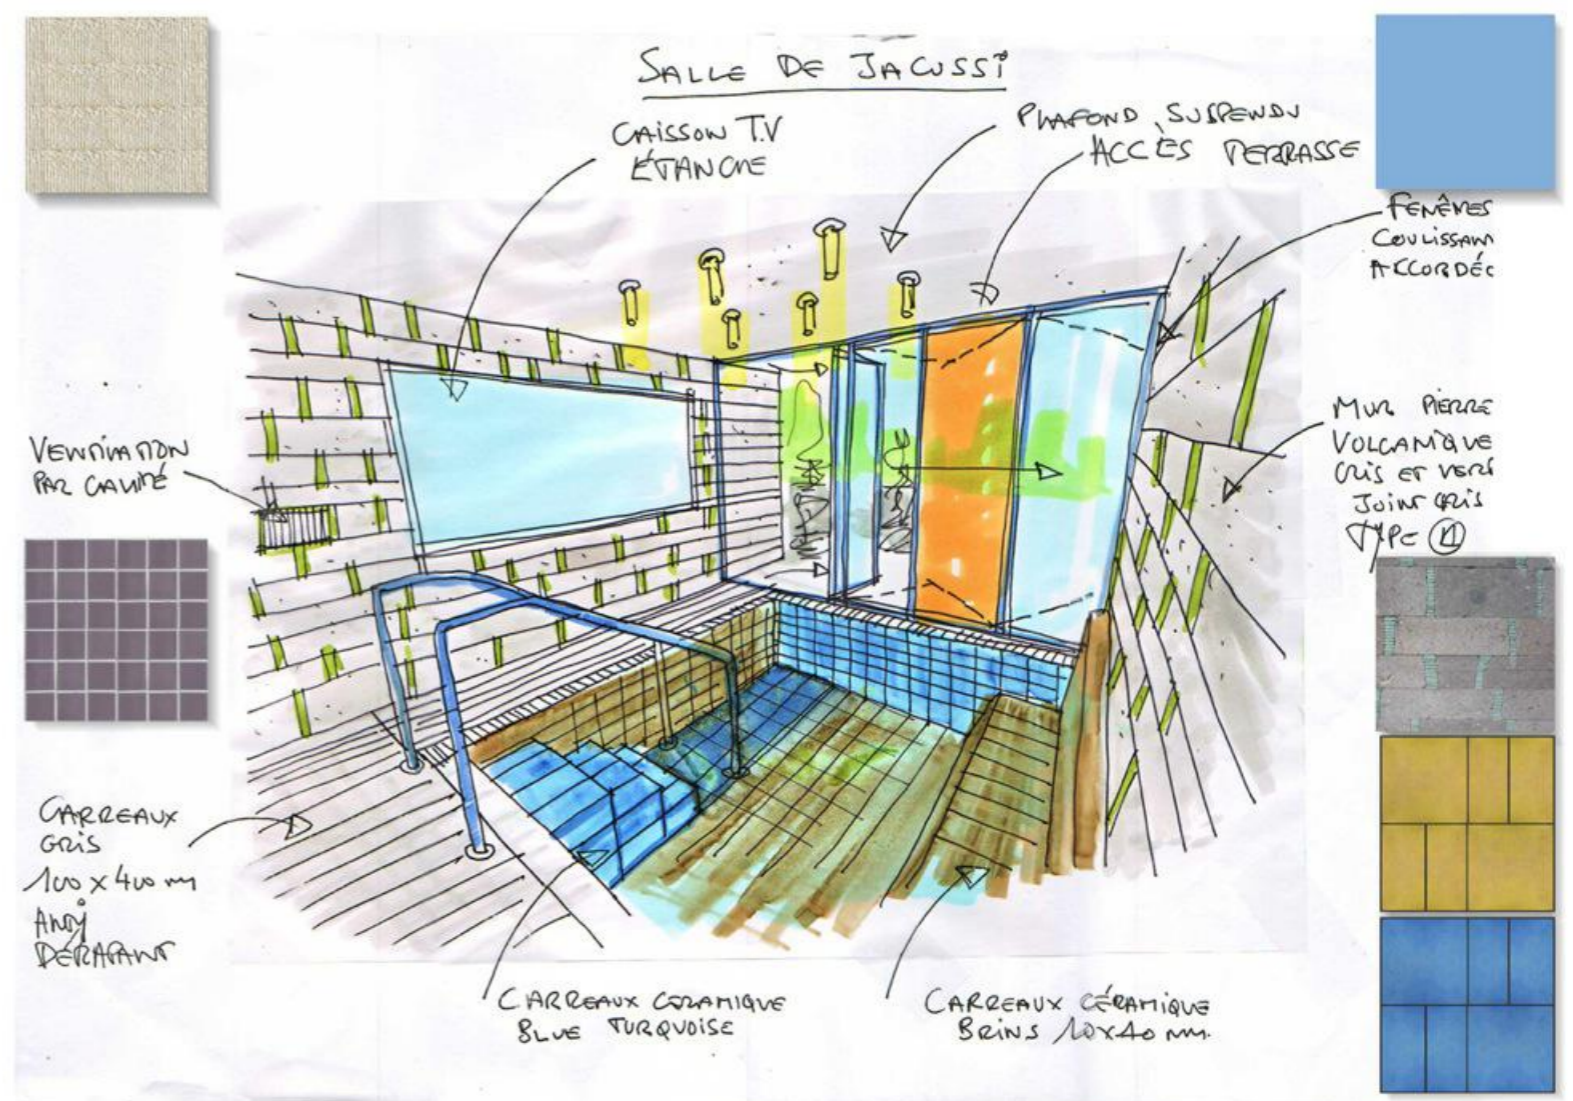 SALLE DE JACUSSI
CAISSON T.V
ÉTANCHE
PLAFOND SUSPENDU
ACCÈS TERRASSE
FENÊRES
COULISSANT
ACCORDÉO
VENTILATION
PAR CAVITÉ
MUR PIERRE
VOLCANIQUE
GRIS ET VERT
JOINT GRIS
TYPE
CARREAUX
GRIS
100 x 400 m
ANTI
DÉRAPANT
CARREAUX CERAMIQUE
BLUE TURQUOISE
CARREAUX CÉRAMIQUE
BRINS 10x40 mm